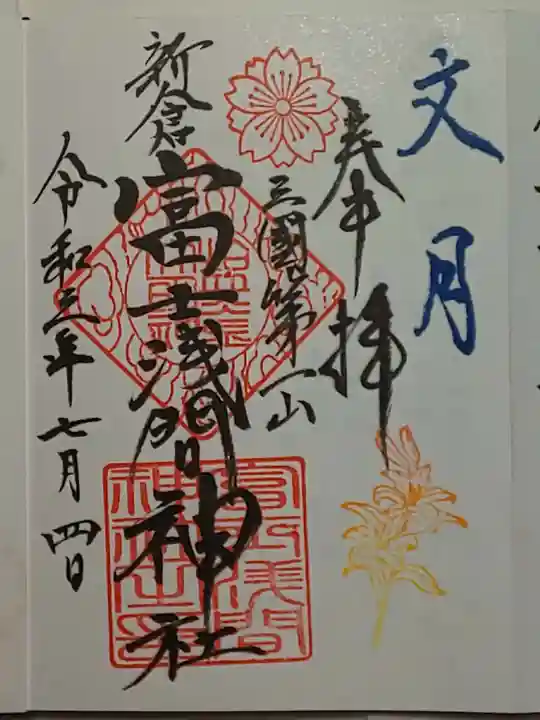 文月
奉拝
三國第一山
新倉
富士浅間神社
令和三年七月四日
富士浅間
神社之印